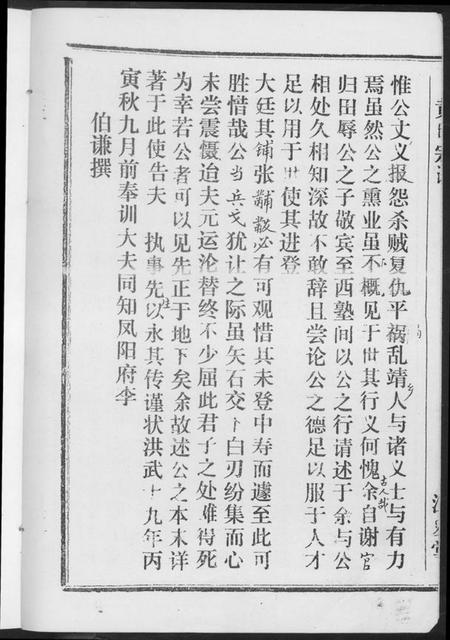 惟公丈义报怨杀贼复仇平祸乱靖乡人与诸义士与有力
焉虽然公之熏业虽不可概见于世其行义何愧古人哉余自谢官
归田辱公之子敬宾至西塾间以公之行请述于余与公
相处久相知深故不敢辞且尝论公之德足以服于人才
足以用于世使其进登
大廷其铺张黼黻必有可观惜其未登中寿而遽至此可
胜惜哉公当兵戈犹让之际虽矢石交下白刃纷集而心
未尝震慑迨夫元运沦替终不少屈此君子之处难得死
为幸若公者可以见先正于地下矣余故述公之本末详
著于此使告夫 执事先往以永其传谨状洪武十九年丙
寅秋九月前奉训大夫同知凤阳府李
伯谦撰